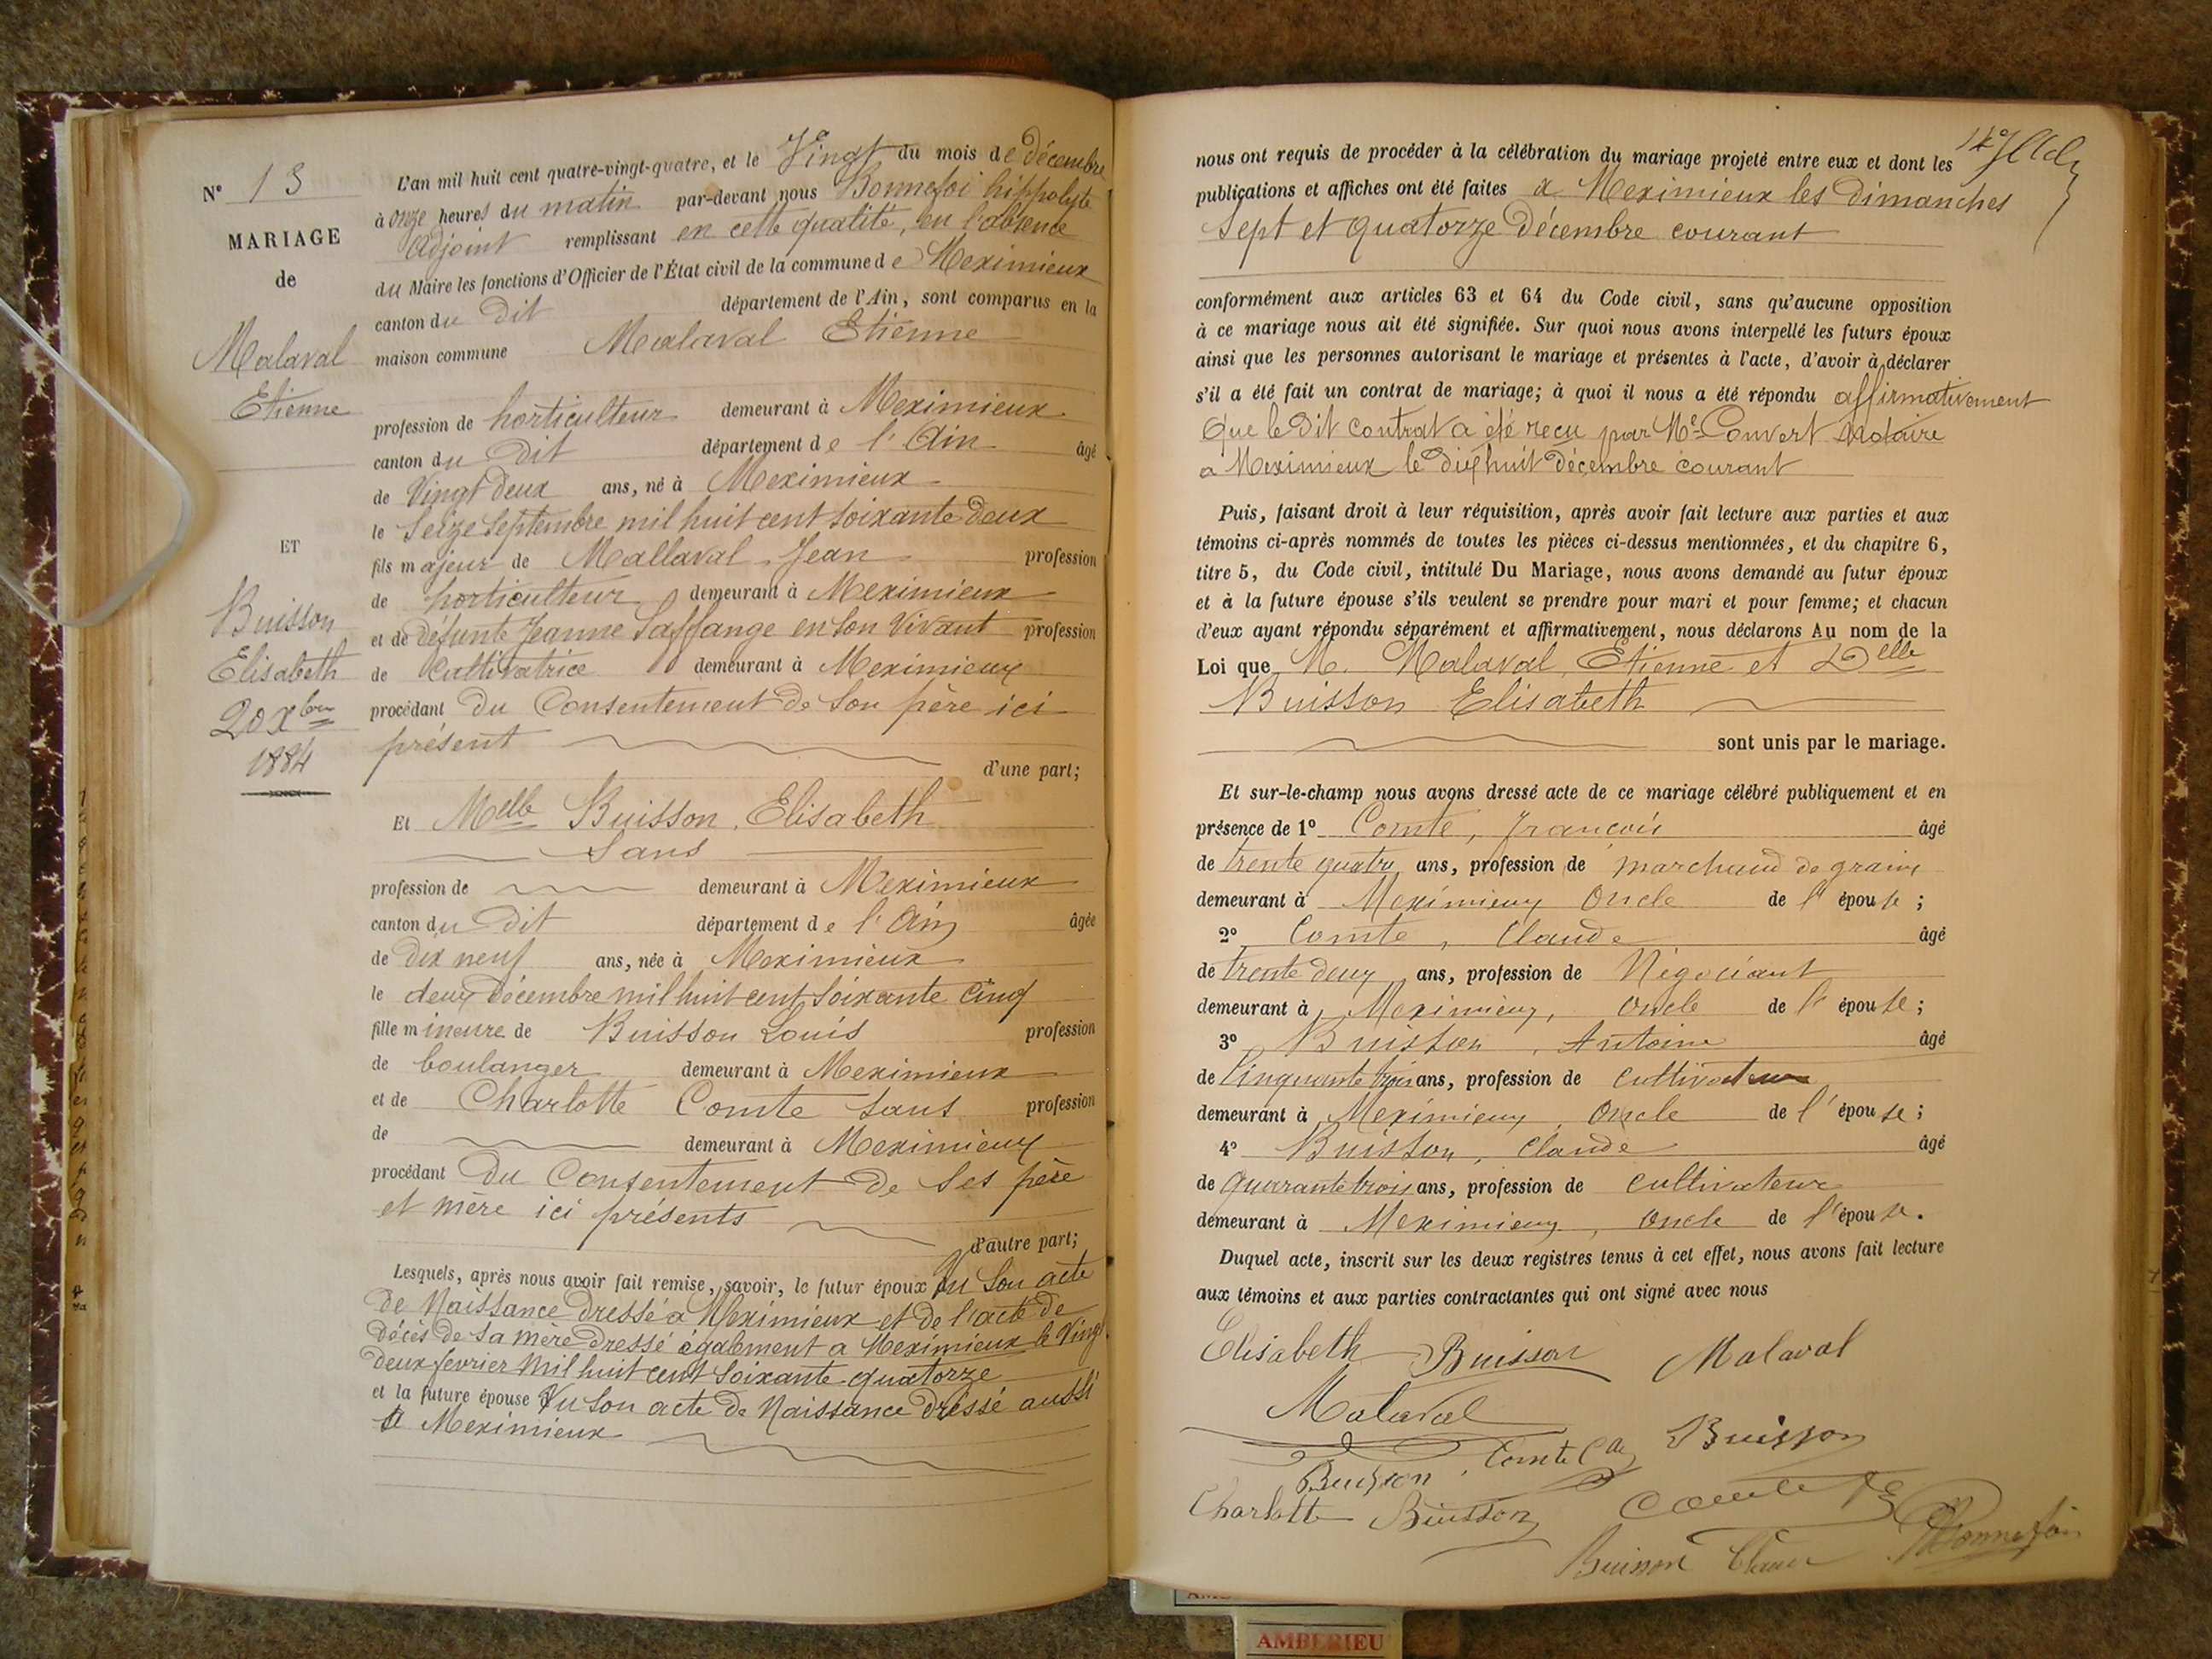 N° 13
MARIAGE
de
Malaval
Etienne
ET
Buisson
Elisabeth
20 Xbre
1884
L'an mil huit cent quatre-vingt-quatre, et le Vingt du mois de décembre
à onze heures du matin par-devant nous Bonnefoi hippolyte
Adjoint remplissant en cette qualité, en l'absence
du Maire les fonctions d'Officier de l'État civil de la commune de Meximieux
canton du dit département de l'Ain, sont comparus en la
maison commune Malaval Etienne
profession de horticulteur demeurant à Meximieux
canton du dit département de l'Ain âgé
de Vingt deux ans, né à Meximieux
le Seize Septembre mil huit cent soixante deux
fils majeur de Mallaval Jean profession
de horticulteur demeurant à Meximieux
et de défunte Jeanne Saffange en son Vivant profession
de Cultivatrice demeurant à Meximieux
procédant du Consentement de Son père ici
présent
d'une part;
Et Melle Buisson, Elisabeth
Sans
profession de demeurant à Meximieux
canton du dit département de l'Ain âgée
de Dix neuf ans, née à Meximieux
le deux décembre mil huit cent soixante Cinq
fille mineure de Buisson Louis profession
de boulanger demeurant à Meximieux
et de Charlotte Comte Sans profession
de demeurant à Meximieux
procédant du Consentement de Ses père
et mère ici présents
d'autre part;
Lesquels, après nous avoir fait remise, savoir, le futur époux Vu Son acte
de Naissance dressé a Meximieux et de l'acte de
décès de Sa mère dressé également a Meximieux le Vingt
deux fevrier mil huit cent soixante quatorze
et la future épouse Vu Son acte de Naissance dressé aussi
a Meximieux
nous ont requis de procéder à la célébration du mariage projeté entre eux et dont les
publications et affiches ont été faites a Meximieux les Dimanches
Sept et quatorze Décembre courant
conformément aux articles 63 et 64 du Code civil, sans qu'aucune opposition
à ce mariage nous ait été signifiée. Sur quoi nous avons interpellé les futurs époux
ainsi que les personnes autorisant le mariage et présentes à l'acte, d'avoir à déclarer
s'il a été fait un contrat de mariage; à quoi il nous a été répondu affirmativement
Que le Dit Contrat a été reçu par Me Convert Notaire
a Meximieux le dix huit décembre courant
Puis, faisant droit à leur réquisition, après avoir fait lecture aux parties et aux
témoins ci-après nommés de toutes les pièces ci-dessus mentionnées, et du chapitre 6,
titre 5, du Code civil, intitulé Du Mariage, nous avons demandé au futur époux
et à la future épouse s'ils veulent se prendre pour mari et pour femme; et chacun
d'eux ayant répondu séparément et affirmativement, nous déclarons Au nom de la
Loi que M. Malaval, Etienne et Delle
Buisson Elisabeth
sont unis par le mariage.
Et sur-le-champ nous avons dressé acte de ce mariage célébré publiquement et en
présence de 1° Comte, François âgé
de trente quatre ans, profession de marchand de grains
demeurant à Meximieux Oncle de l'épouse;
2° Comte, Claude âgé
de trente deux ans, profession de Négociant
demeurant à Meximieux, oncle de l'épouse;
3° Buisson, Antoine âgé
de Cinquante trois ans, profession de cultivateur
demeurant à Meximieux, Oncle de l'épouse;
4° Buisson, Claude âgé
de quarante trois ans, profession de cultivateur
demeurant à Meximieux, oncle de l'épouse.
Duquel acte, inscrit sur les deux registres tenus à cet effet, nous avons fait lecture
aux témoins et aux parties contractantes qui ont signé avec nous
Elisabeth Buisson Malaval
Malaval
Buisson Comte Cde Buisson
Charlotte Buisson Comte
Buisson Claude Bonnefoi
AMBERIEU